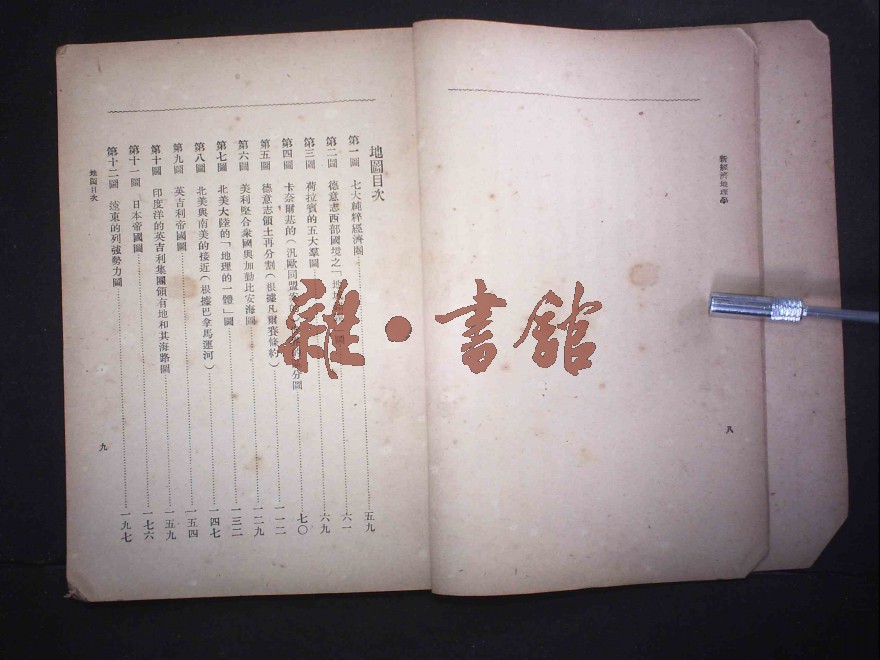 新經濟地理學
八
地圖目次
第一圖 七大純粹經濟圈 五九
第二圖 德意志西部國境之「地 六一
第三圖 荷拉賓的五大羣圖 六九
第四圖 卡奈爾基的(汎歐同盟 分圖 七〇
第五圖 德意志領土再分割(根據凡爾賽條約) 一一二
第六圖 美利堅合衆國與加勒比安海圖 一二九
第七圖 北美大陸的「地理的一體」圖 一三二
第八圖 北美與南美的接近(根據巴拿馬運河) 一四七
第九圖 英吉利帝國圖 一五四
第十圖 印度洋的英吉利集團領有地和其海路圖 一五九
第十一圖 日本帝國圖 一七六
第十二圖 遠東的列強勢力圖 一九七
地圖目次
九
雜·書館